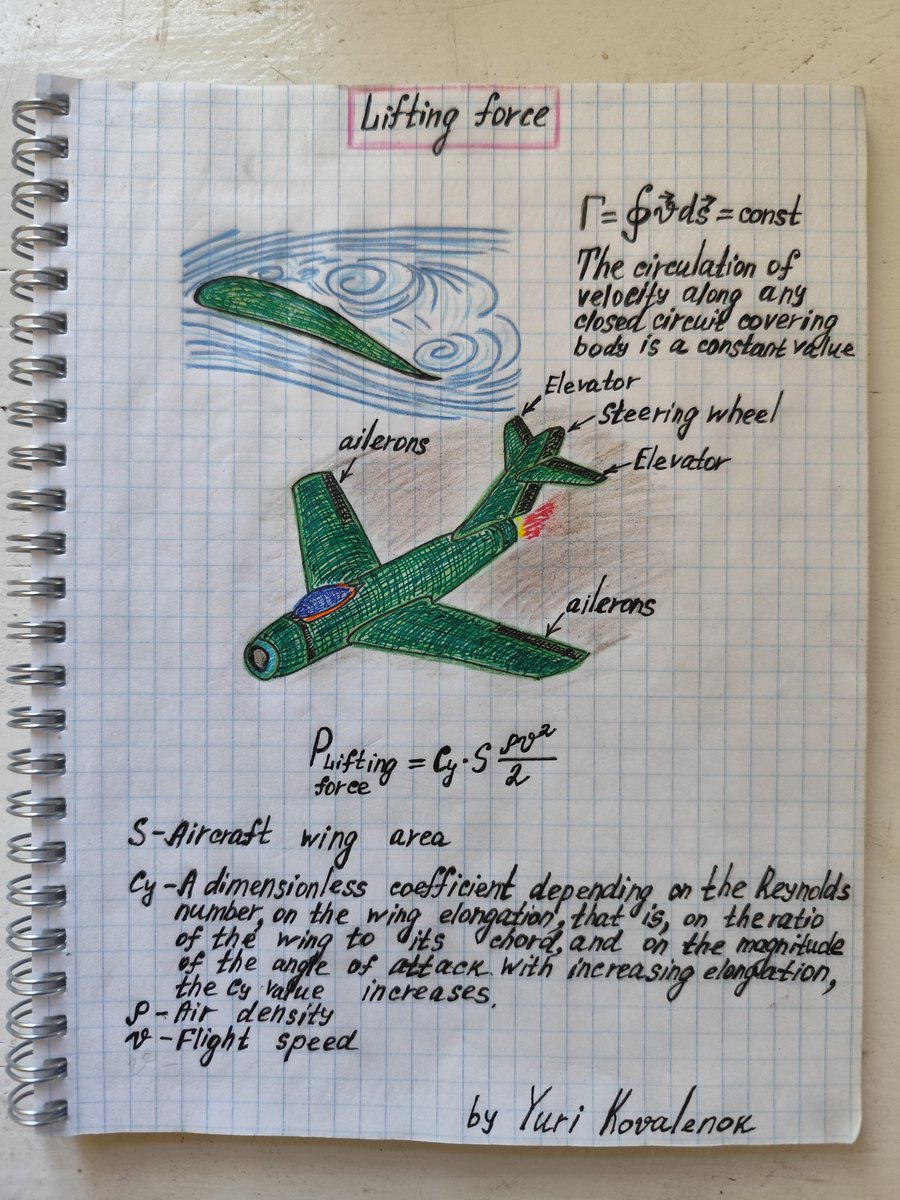 Lifting force
Γ = ∮v⃗ds⃗ = const
The circulation of
velocity along any
closed circuit covering
body is a constant value
Elevator
Steering wheel
ailerons
Elevator
ailerons
P Lifting force = Cy · S ρv²/2
S - Aircraft wing area
Cy - A dimensionless coefficient depending on the Reynolds
number, on the wing elongation, that is, on the ratio
of the wing to its chord, and on the magnitude
of the angle of attack with increasing elongation,
the Cy value increases.
ρ - Air density
v - Flight speed
by Yuri Kovalenok